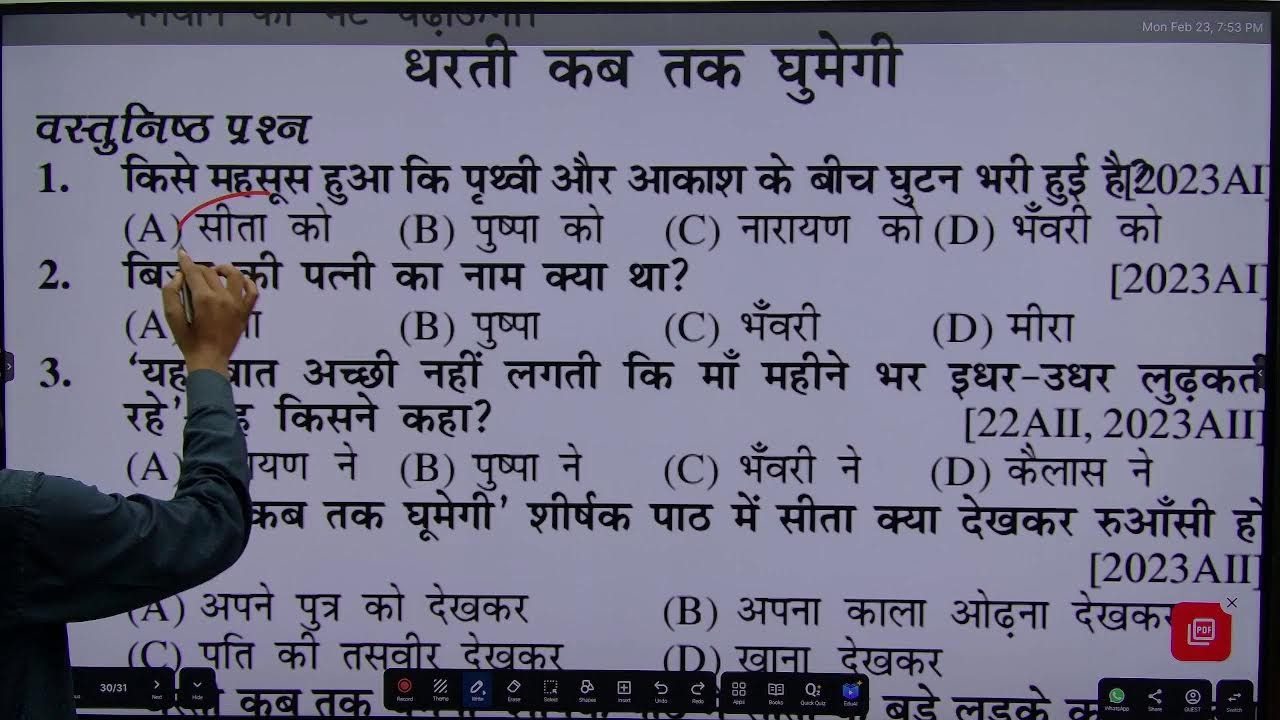 Mon Feb 23, 7:53 PM
धरती कब तक घुमेगी
वस्तुनिष्ठ प्रश्न
1. किसे महसूस हुआ कि पृथ्वी और आकाश के बीच घुटन भरी हुई है? [2023AI]
(A) सीता को (B) पुष्पा को (C) नारायण को (D) भँवरी को
2. की पत्नी का नाम क्या था? [2023AI]
(A) (B) पुष्पा (C) भँवरी (D) मीरा
3. ‘यह बात अच्छी नहीं लगती कि माँ महीने भर इधर-उधर लुढ़कती
रहे’ किसने कहा? [22AII, 2023AII]
(A) ने (B) पुष्पा ने (C) भँवरी ने (D) कैलास ने
कब तक घूमेगी’ शीर्षक पाठ में सीता क्या देखकर रुआँसी हो
[2023AII]
(A) अपने पुत्र को देखकर (B) अपना काला ओढ़ना देखकर
(C) पति की तसवीर देखकर (D) खाना देखकर
PDF
30/31 Next Hide Record Theme Write Eraser Select Shapes Insert Undo Redo Apps Books Quick Quiz EduAI WhatsApp Share GUEST Switch
कब तक